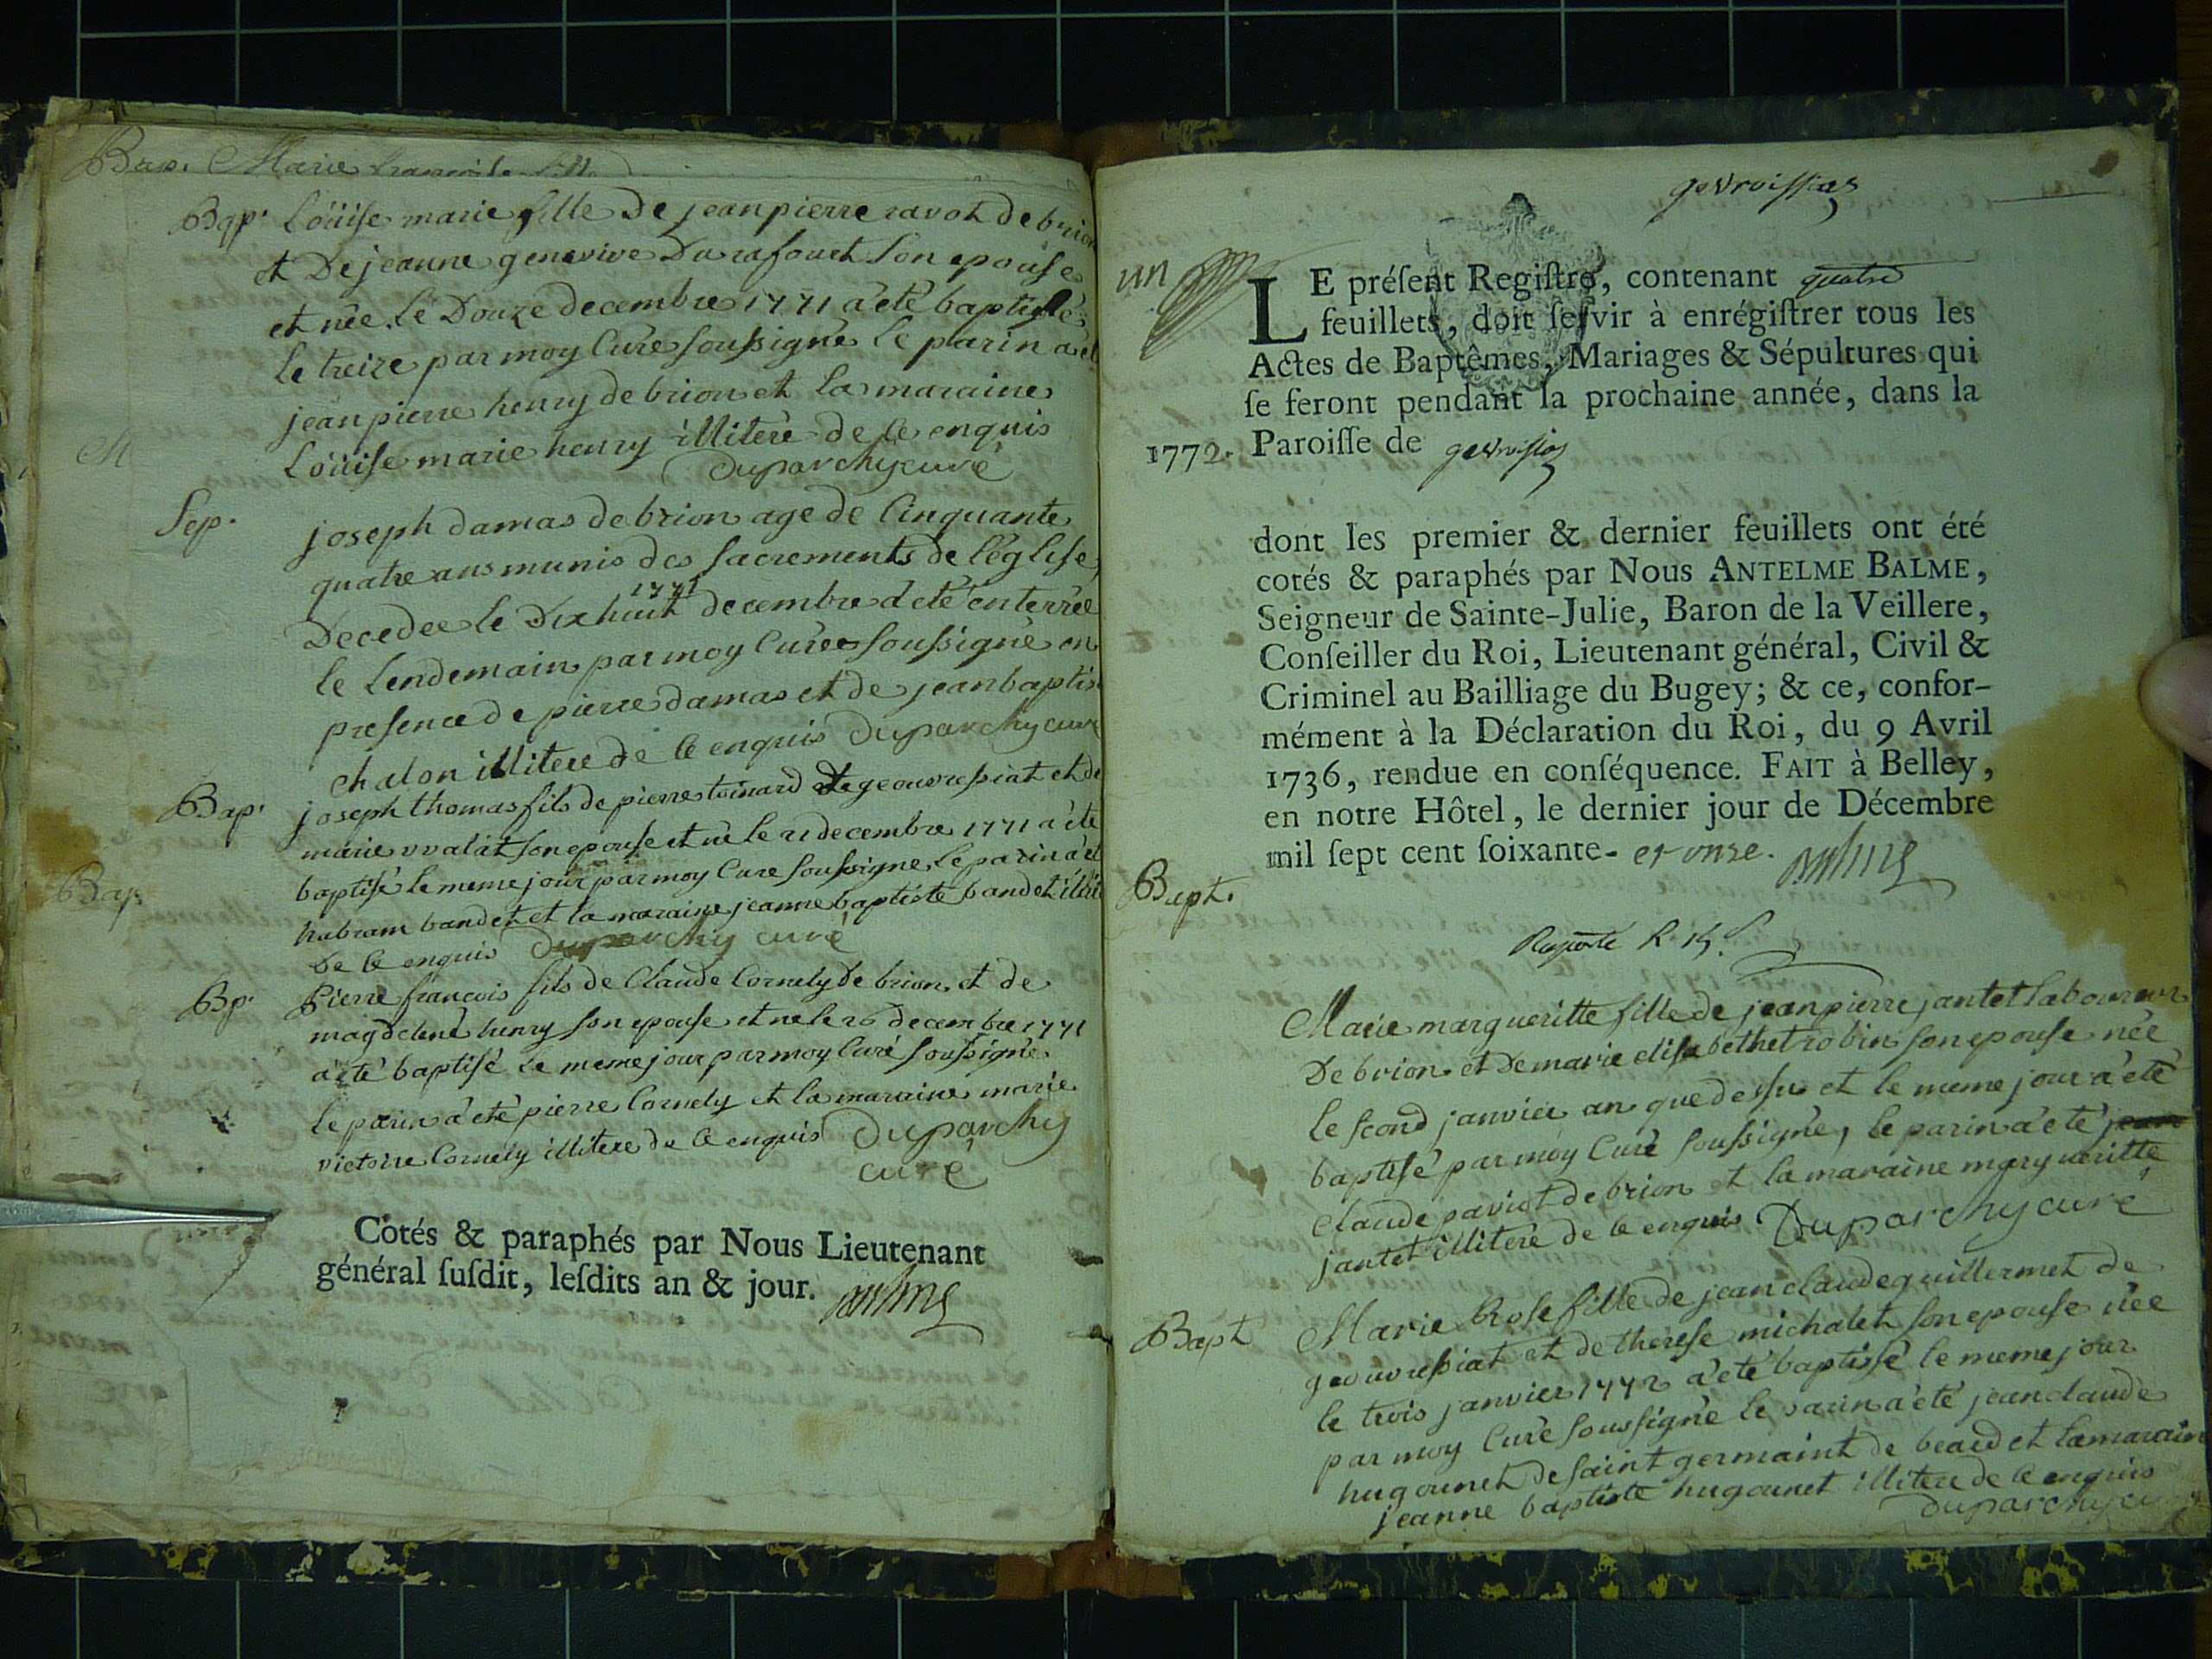 Bap. Marie
Bap. Loüise marie fille de jean pierre ravot de brion
et de jeanne genevive Durafouet son epouse
et née le Douze decembre 1771 a été baptisé
le treize par moy Curé soussigné le parin a et
jean pierre henry de brion et la maraine
Loüise marie henry illiteré de ce enquis
Duparchy curé
Sep. joseph damas de brion age de Cinquante
quatre ans munis des sacrements de l'église
1771
Decedee le Dix huit decembre a eté enterrée
le Lendemain par moy Curé soussigné en
presence de pierre damas et de jean baptis
chalon illitere de ce enquis Duparchy cure
Bap. joseph thomas fils de pierre toinard de geouvressiat et de
marie vvalat son epouse et né le 21 decembre 1771 a été
baptisé le meme jour par moy Cure soussigne le parin a et
habram bandet et la maraine jeanne baptiste bandet illit
de ce enquis Duparchy curé
Bp. Pierre francois fils de Claude Cornely de brion et de
magdelené henry son epouse et ne le 26 decembre 1771
a eté baptisé le meme jour par moy Curé soussigne
le parin a eté pierre Cornely et la maraine marie
victoire Cornely illitere de ce enquis Duparchy
curé
Cotés & paraphés par Nous Lieutenant
général susdit, lesdits an & jour.
Bap.
gevroissias
un
LE présent Registre, contenant quatre
feuillets, doit servir à enrégistrer tous les
Actes de Baptêmes, Mariages & Sépultures qui
se feront pendant la prochaine année, dans la
1772. Paroisse de
dont les premier & dernier feuillets ont été
cotés & paraphés par Nous ANTELME BALME,
Seigneur de Sainte-Julie, Baron de la Veillere,
Conseiller du Roi, Lieutenant général, Civil &
Criminel au Bailliage du Bugey; & ce, confor-
mément à la Déclaration du Roi, du 9 Avril
1736, rendue en conséquence. FAIT à Belley,
en notre Hôtel, le dernier jour de Décembre
mil sept cent soixante- et onze.
Bapt.
Marie margueritte fille de jean pierre jantet laboureur
De brion et De marie elisabethet robin son epouse née
le scond janvier an que dessu et le meme jour a été
baptisé par moy Curé soussigné, le parin a eté jean
claude paviot de brion et la maraine margueritte
jantet illiteré de ce enquis Duparchy curé
Bapt Marie Rose fille de jean claude guillermet de
geouvressiat et de therese michalet son epouse née
le trois janvier 1772 a été baptisé le meme jour
par moy Curé soussigné le parin a été jean claude
hugounet de saint germaint de beard et la marain
jeanne baptiste hugounet illitere de ce enquis
Duparchy cu